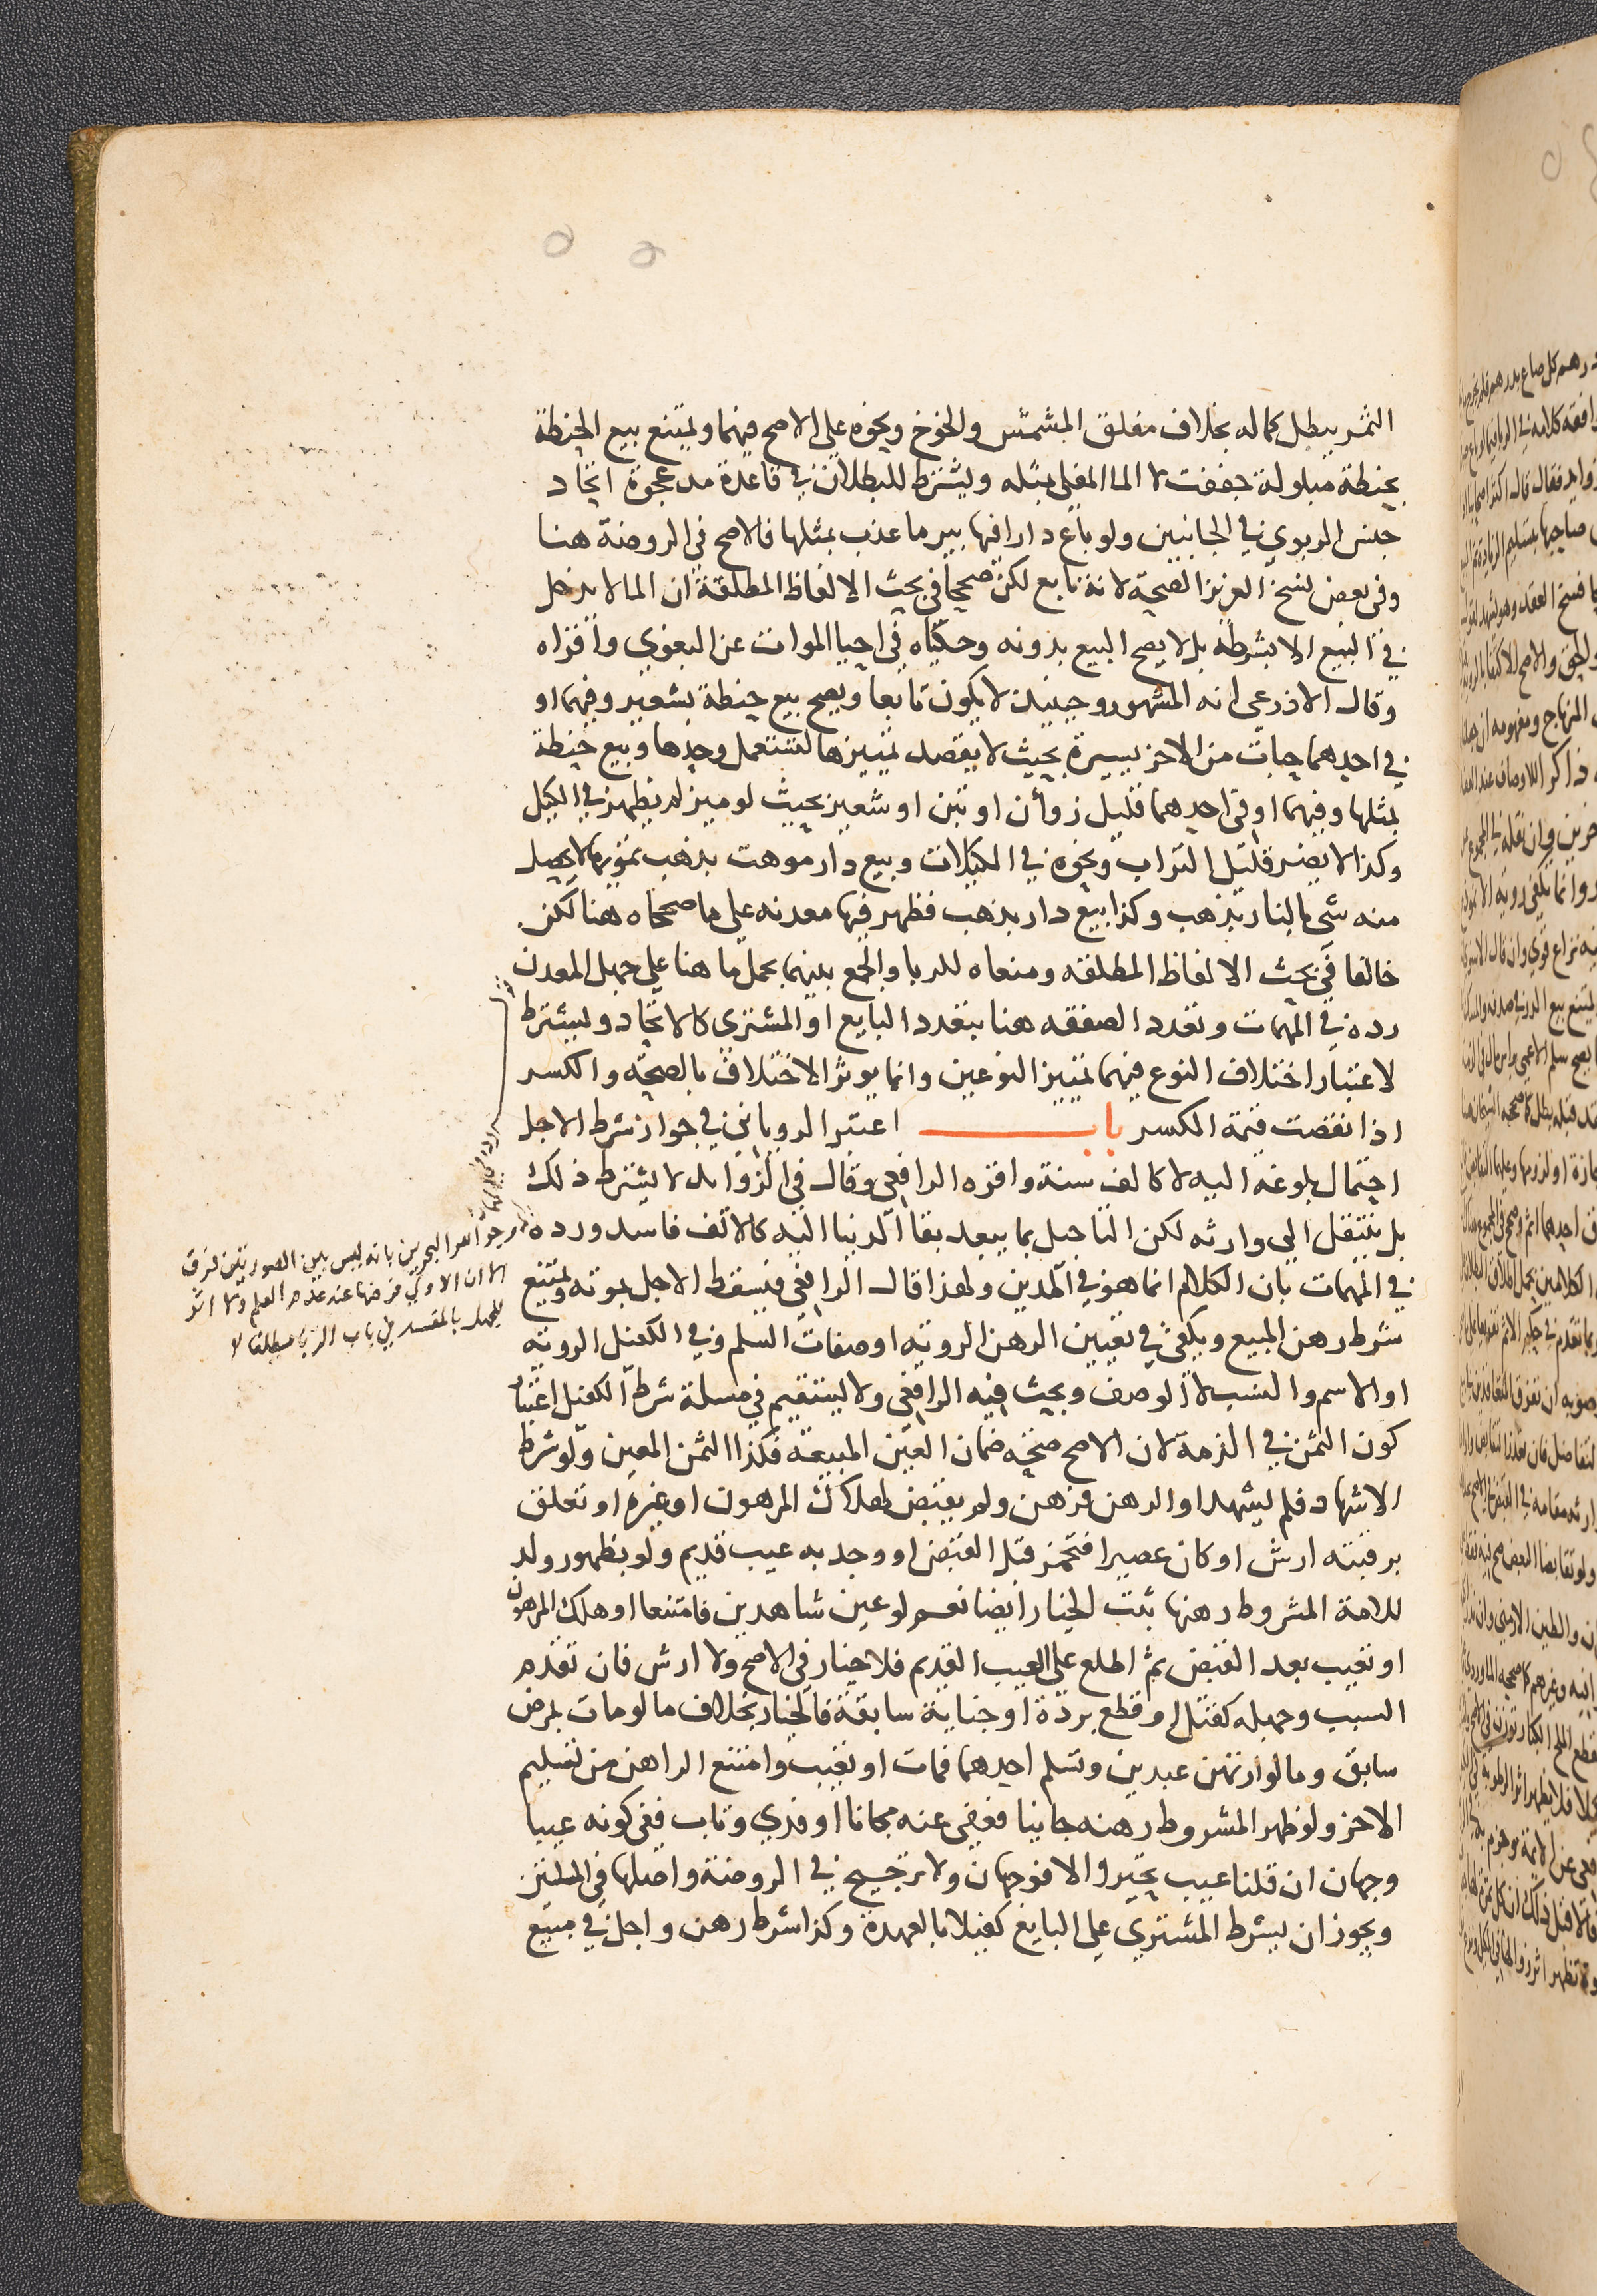 التمر يبطل كماله بخلاف مفلق المشمش والخوخ ونحوه على الاصح فيهما ويمتنع بيع الحنطة
بحنطة مبلولة جففت لا الما المغلي بمثله ويشترط للبطلان في قاعدة مد عجوة اتحاد
جنس الربوي في الجانبين ولو باع دارا فيها بير ما عذب بمثلها فالاصح في الروضة هنا
وفي بعض نسخ العزيز الصحة لانه تابع لكن صححا في بحث الالفاظ المطلقة ان الما لا يدخل
في البيع الا بشرطه بل لا يصح البيع بدونه وحكياه في احيا الموات عن البغوي واقراه
وقال الاذرعي انه المشهور وحينيذ لا يكون تابعا ويصح بيع حنطة بشعير وفيهما او
في احدهما حبات من الاخر يسيرة بحيث لا يقصد تمييزها لتستعمل وحدها وبيع حنطة
بمثلها وفيهما او في احدهما قليل زوأن او تبن او شعير بحيث لو ميز لم يظهر في الكيل
وكذا لا يضر قليل التراب ونحوه في المكيلات وبيع دار موهت بذهب تمويها لا يحصل
منه شي بالنار بذهب وكذا بيع دار بذهب فظهر فيها معدنه على ما صححاه هنا لكن
خالفا في بحث الالفاظ المطلقه ومنعاه للربا والجمع بينهما بحمل ما هنا على جهل المعدن
رده في المهمات وتعدد الصفقه هنا بتعدد البايع او المشتري كالاتحاد ويشترط
لاعتبار اختلاف النوع فيهما تمييز النوعين وانما يوثر الاختلاف بالصحة والكسر
اذا نقصت قيمة الكسر باب اعتبر الروياني في جواز شرط الاجل
احتمال بلوغه اليه لا كالف سنة واقره الرافعي وقال في الزوايد لا يشترط ذلك
بل ينتقل الى وارثه لكن التاجيل بما يبعد بقا الدنيا اليه كالالف فاسد ورده
في المهمات بان الكلام انما هو في المدين ولهذا قال الرافعي فيسقط الاجل بموته ويمتنع
شرط رهن المبيع ويكفي في تعيين الرهن الروية او صفات السلم وفي الكفيل الروية
او الاسم والنسب لا الوصف وبحث فيه الرافعي ولا يستقيم في مسلة شرط الكفيل اعتبار
كون الثمن في الذمة لان الاصح صحة ضمان العين المبيعة فكذا الثمن المعين ولو شرط
الاشهاد فلم يشهد او الرهن فرهن ولم يقبض لهلاك المرهون او غيره او تعلق
برقبته ارش او كان عصيرا فتخمر قبل القبض او وجد به عيب قديم ولو بظهور ولد
للامة المشروط رهنها ثبت الخيار ايضا نعم لو عين شاهدين فامتنعا او هلك المرهون
او تعيب بعد القبض ثم اطلع على العيب القديم فلا خيار في الاصح ولا ارش فان تقدم
السبب وجهله كقتل او قطع بردة او جناية سابقة فالخيار بخلاف ما لو مات بمرض
سابق وما لو ارتهن عبدين وتسلم احدهما فمات او تعيب وامتنع الراهن من تسليم
الاخر ولو ظهر المشروط رهنه جانيا فعفي عنه مجانا او فدي وتاب ففي كونه عيبا
وجهان ان قلنا عيب تخير والا فوجهان ولا ترجيح في الروضة واصلها في المسلتين
ويجوز ان يشرط المشتري على البايع كفيلا بالعهدة وكذا شرط رهن واجل في مبيع
بانه ليس بين الصورتين فرق
الا ان الاولى فرضها عند عدم العلم ولا اثر
للجهل بالمفسد في باب الربا مطلقا